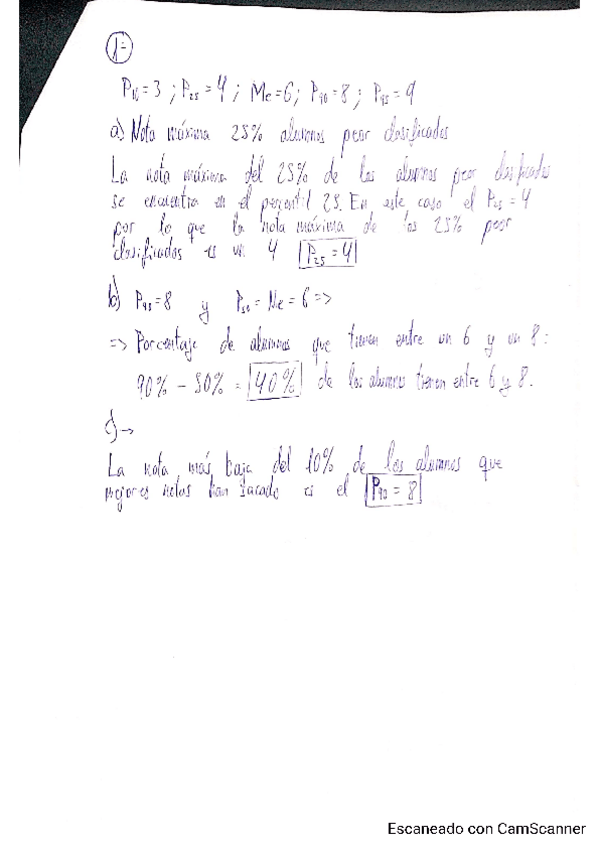 1=
P₁₀=3 ; P₂₅=4 ; Me=6; P₉₀=8 ; P₉₅=9
a) Nota máxima 25% alumnos peor clasificados
La nota máxima del 25% de los alumnos peor clasificados
se encuentra en el percentil 25. En este caso el P₂₅=4
por lo que la nota máxima de los 25% peor
clasificados es un 4 P₂₅=4
b) P₉₀=8 y P₅₀=Me=6=>
=> Porcentaje de alumnos que tienen entre un 6 y un 8:
90% - 50% = 40% de los alumnos tienen entre 6 y 8.
c) →
La nota más baja del 10% de los alumnos que
mejores notas han sacado es el P₉₀=8
Escaneado con CamScanner